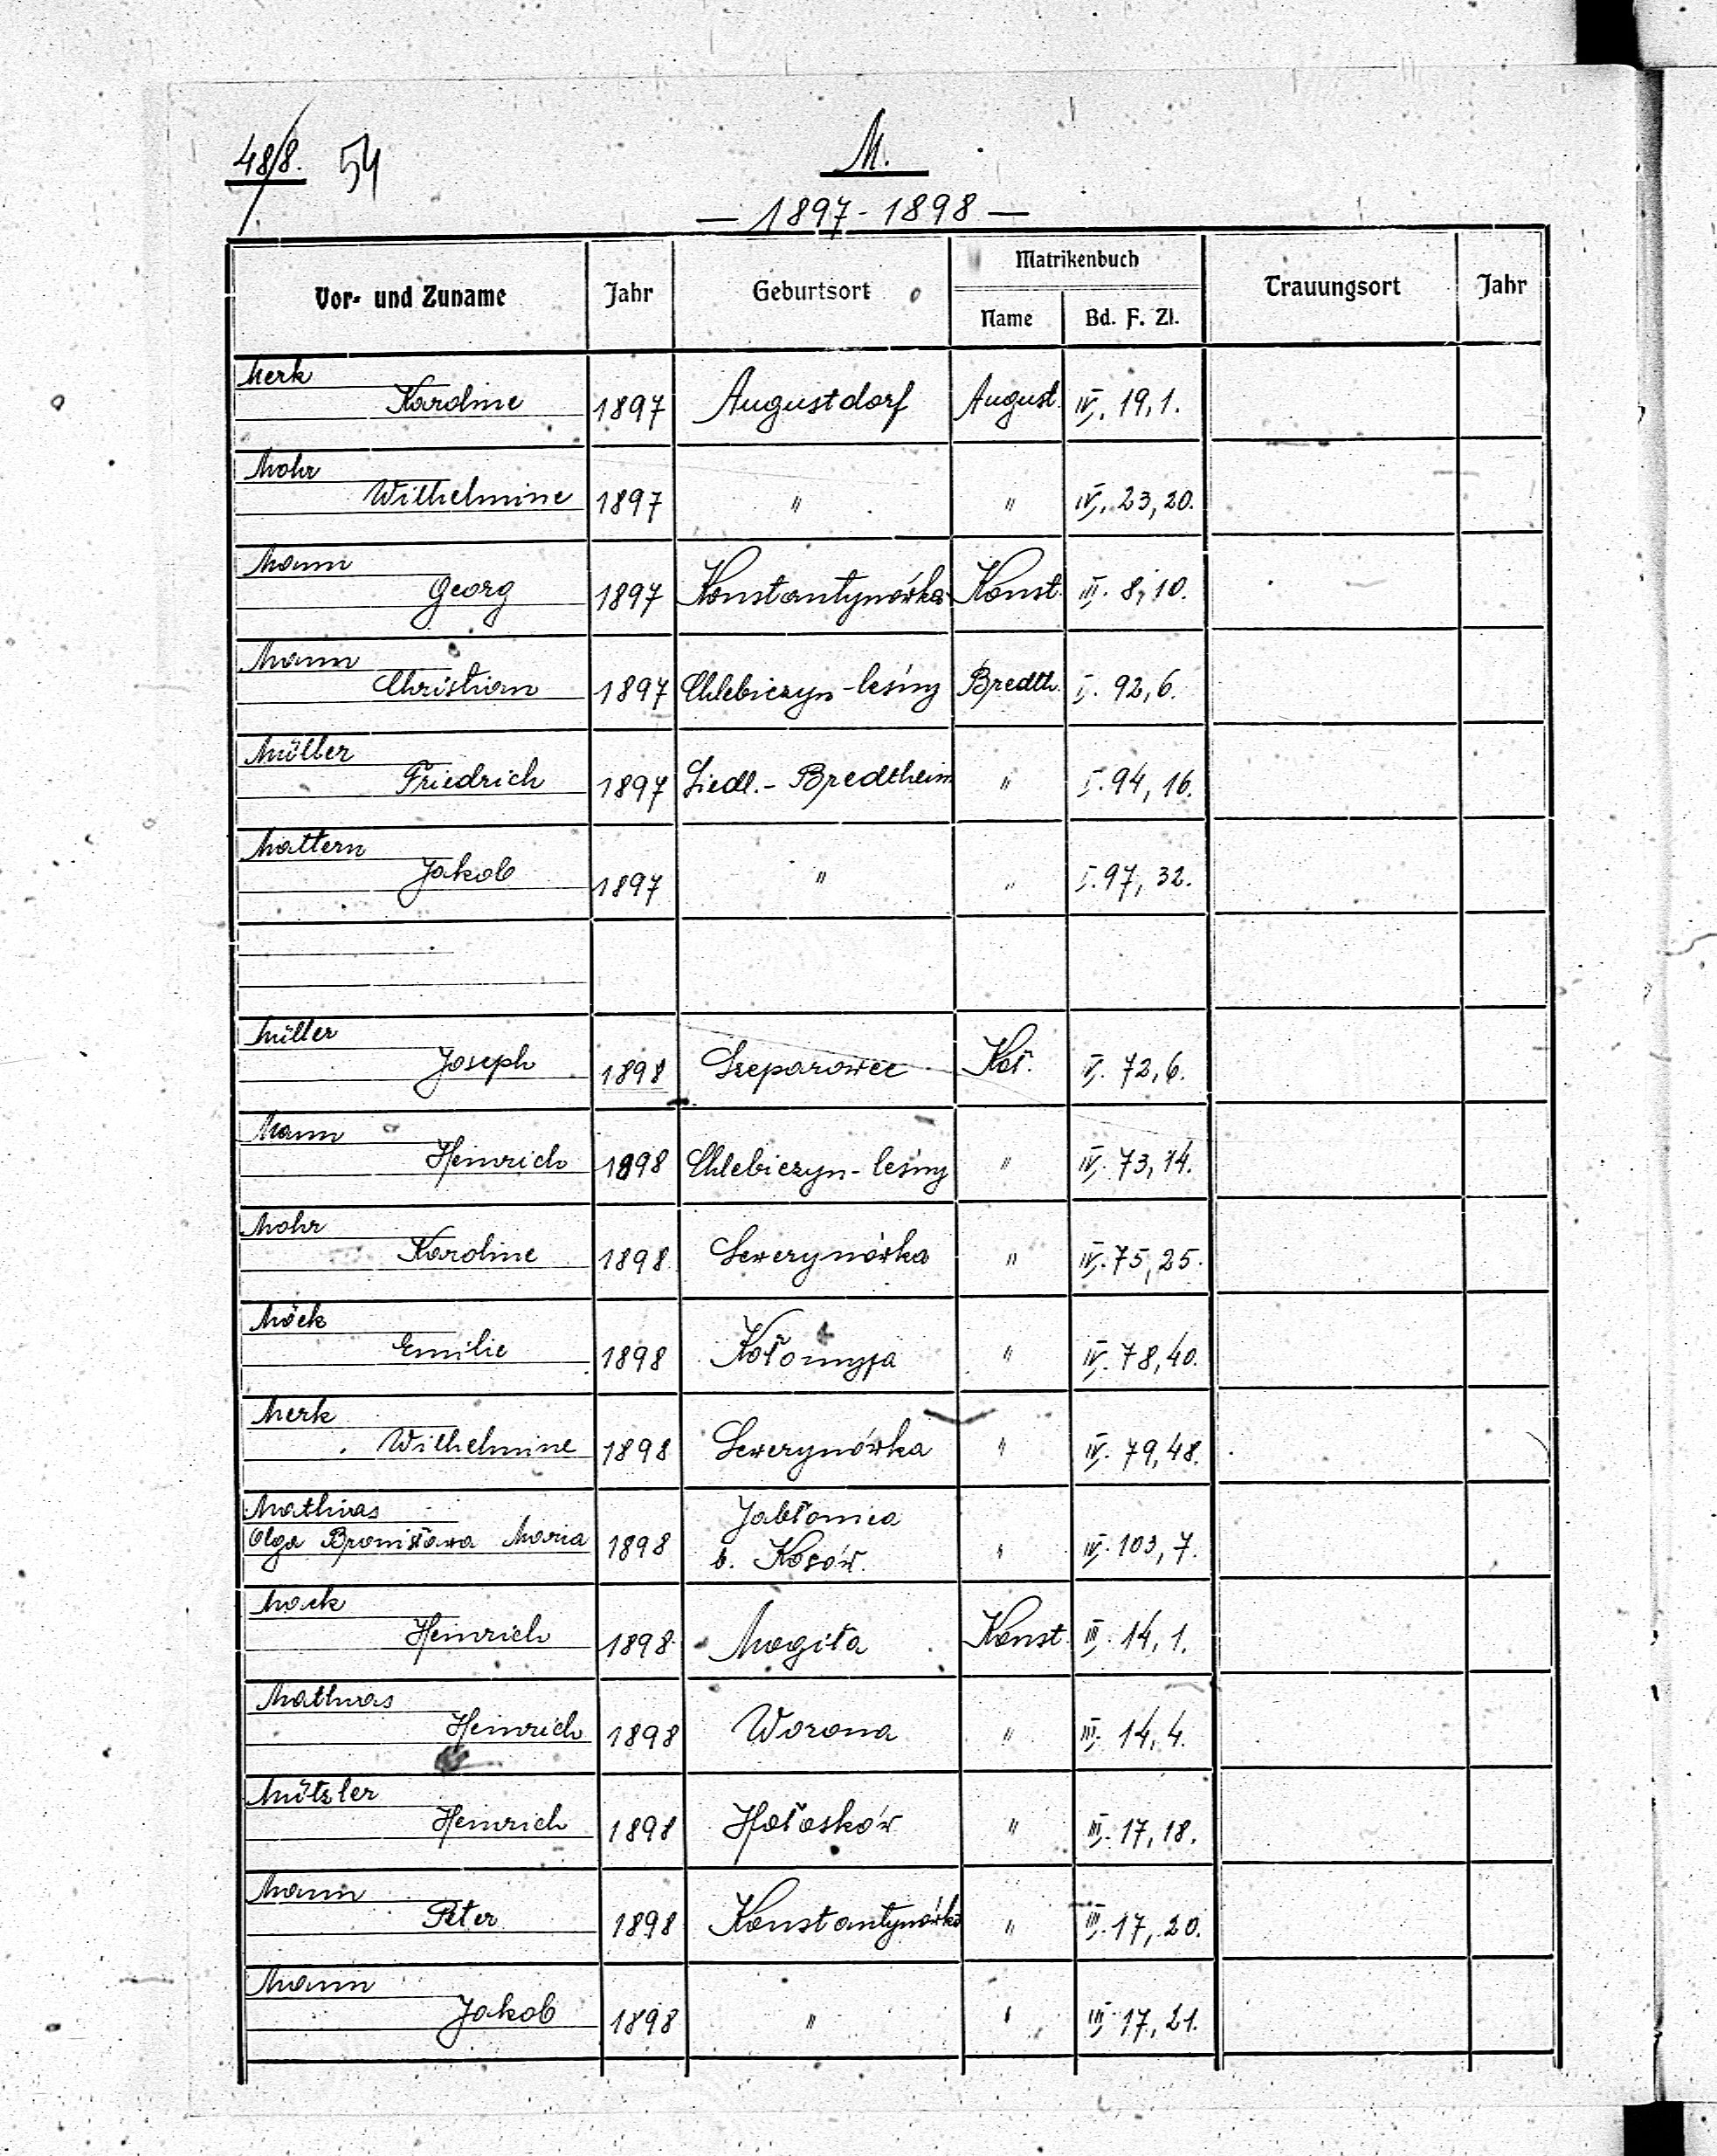 48/8. 54
M.
— 1897 - 1898 —
Vor- und Zuname Jahr Geburtsort Matrikenbuch Trauungsort Jahr
Name Bd. F. Zl.
Merk
Karoline 1897 Augustdorf August. IV. 19, 1.
Mohr
Wilhelmine 1897 " " IV. 23, 20.
Mann
Georg 1897 Konstantynówka Konst. III. 8, 10.
Mann
Christian 1897 Chlebiczyn-leśny Bredth. I. 92, 6.
Müller
Friedrich 1897 Siedl.- Bredtheim " I. 94, 16.
Mattern
Jakob 1897 " " I. 97, 32.
Müller
Joseph 1898 Szeparowce Koł. V. 72, 6.
Mann
Heinrich 1898 Chlebiczyn-leśny " IV. 73, 14.
Mohr
Karoline 1898 Sewerynówka " IV. 75, 25.
Möck
Emilie 1898 Kołomyja " IV. 78, 40.
Merk
Wilhelmine 1898 Sewerynówka " IV. 79, 48.
Mathias Jabłonica
Olga Bronisława Maria 1898 b. Kosów. " IV. 103, 7.
Mock
Heinrich 1898 Mogiła Konst. III. 14, 1.
Mathias
Heinrich 1898 Worona " III. 14, 4.
Mützler
Heinrich 1898 Hołosków " III. 17, 18.
Mann
Peter 1898 Konstantynówka " III. 17, 20.
Mann
Jakob 1898 " " III. 17, 21.